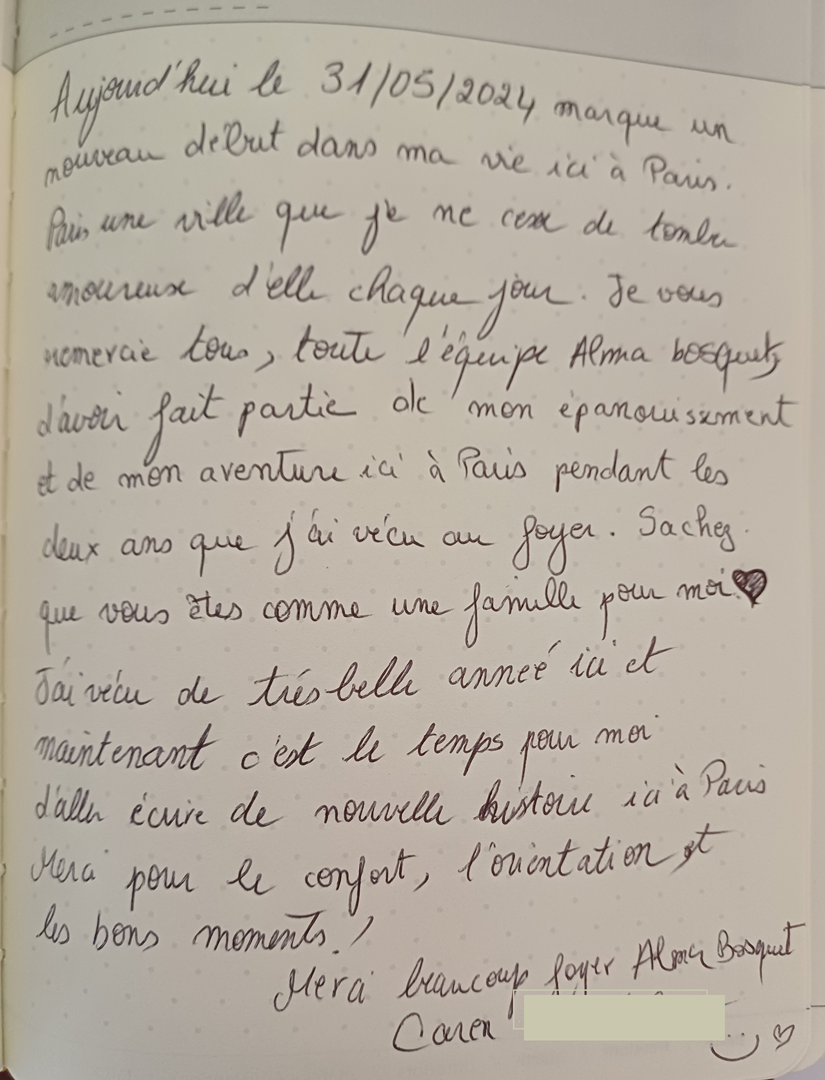 Aujourd'hui le 31/05/2024 marque un
nouveau début dans ma vie ici à Paris.
Paris une ville que je ne cesse de tomber
amoureuse d'elle chaque jour. Je vous
remercie tous, toute l'équipe Alma bosquet,
d'avoir fait partie de mon épanouissement
et de mon aventure ici à Paris pendant les
deux ans que j'ai vécu au foyer. Sachez
que vous êtes comme une famille pour moi ♥
J'ai vécu de trés belle anneé ici et
maintenant c'est le temps pour moi
d'aller écrire de nouvelle histoire ici à Paris
Merci pour le confort, l'orientation et
les bons moments !
Merci beaucoup foyer Alma Bosquet
Caren